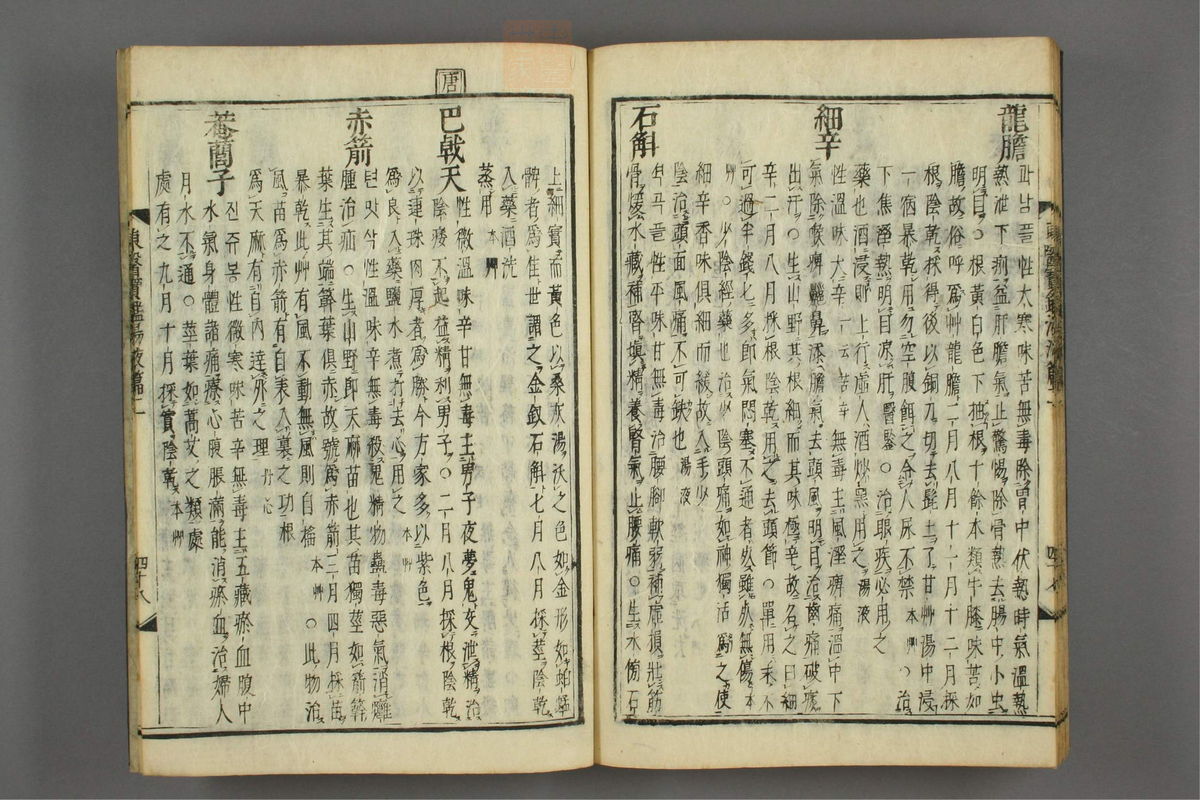 龍膽
과남플性大寒味苦無毒除胃中伏熱時氣溫熱
熱泄下痢益肝膽氣止驚惕除骨熱去腸中小虫
明目○根黃白色下抽根十餘本類牛膝味苦如
膽故俗呼爲艸龍膽二月八月十一月十二月採
根陰乾採得後以銅刀切去髭土了甘艸湯中浸
一宿暴乾用勿空腹餌之令人尿不禁 本艸 ○治
下焦溼熱明目涼肝 醫鑒 ○治眼疾必用之
藥也酒浸則上行虛人酒炒黑用之 湯液
細辛
性溫味大辛 一云苦辛 無毒主風溼痺痛溫中下
氣除喉痺齆鼻添膽氣去頭風明目治齒痛破痰
出汗○生山野其根細而其味極辛故名之曰細
辛二月八月採根陰乾用之去頭節○單用末不
可過半錢匕多卽氣悶塞不通者死雖死無傷 本
艸 ○少陰經藥也治少陰頭痛如神獨活爲之使
細辛香味俱細而緩故入手少
陰治頭面風痛不可缺也 湯液
石斛
셕곡플性平味甘無毒治腰脚軟弱補虛損壯筋
骨煖水藏補腎塡精養腎氣止腰痛○生水傍石
上細實而黃色以桑灰湯沃之色如金形如蚱蜢
髀者爲佳世謂之金釵石斛七月八月採莖陰乾
入藥酒洗
蒸用 本艸
唐
巴戟天
性微溫味辛甘無毒主男子夜夢鬼交泄精治
陰痿不起益精利男子○二月八月採根陰乾
以連珠肉厚者爲勝今方家多以紫色
爲良入藥鹽水煮打去心用之 本艸
赤箭
텬맛삭性溫味辛無毒殺鬼精物蠱毒惡氣消癰
腫治疝○生山野卽天麻苗也其苗獨莖如箭簳
葉生其端簳葉俱赤故號爲赤箭三月四月採苗
暴乾此艸有風不動無風則自搖 本艸 ○此物治
風苗爲赤箭有自表入裏之功根
爲天麻有自內達外之理 丹心
菴䕡子
진쥬봉性微寒味苦辛無毒主五藏瘀血腹中
水氣身體諸痛療心腹脹滿能消瘀血治婦人
月水不通○莖葉如蒿艾之類處
處有之九月十月採實陰乾 本艸
東醫寶鑑湯液篇三
四十八